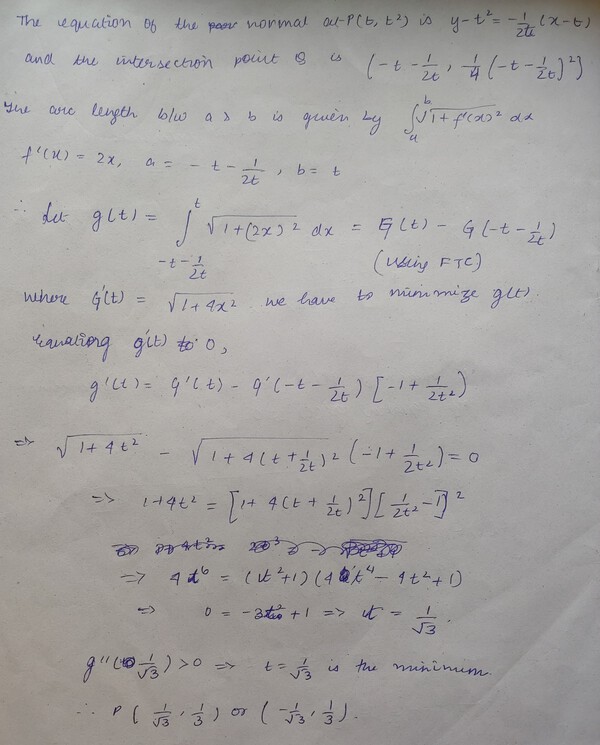 The equation of the normal at P(t, t²) is y-t² = -1/2t (x-t)
and the intersection point Q is (-t - 1/2t, 1/4 (-t - 1/2t)²)
The arc length b/w a & b is given by ∫ₐᵇ √(1+f'(x)²) dx
f'(x) = 2x, a = -t - 1/2t, b = t
∴ Let g(t) = ∫_{-t-1/2t}^{t} √(1+(2x)²) dx = G(t) - G(-t - 1/2t)
(Using FTC)
where G'(t) = √(1+4x²) we have to minimize g(t).
Equationg g'(t) to 0,
g'(t) = G'(t) - G'(-t - 1/2t) [-1 + 1/2t²]
⇒ √(1+4t²) - √(1+4(t+1/2t)²) (-1 + 1/2t²) = 0
⇒ 1+4t² = [1+4(t+1/2t)²][1/2t² - 1]²
⇒ 4t⁶ = (t²+1)(4t⁴ - 4t² + 1)
⇒ 0 = -3t² + 1 ⇒ t = 1/√3.
g''(1/√3) > 0 ⇒ t = 1/√3 is the minimum.
∴ P (1/√3, 1/3) or (-1/√3, 1/3).